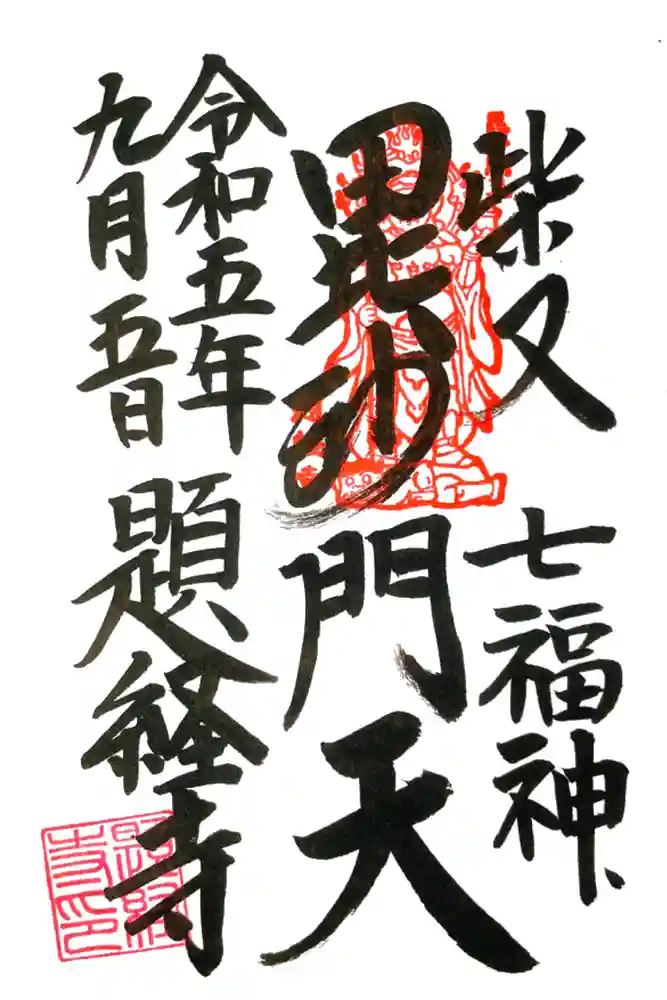 柴又七福神
毘沙門天
令和五年
九月五日
題経寺
題経寺印